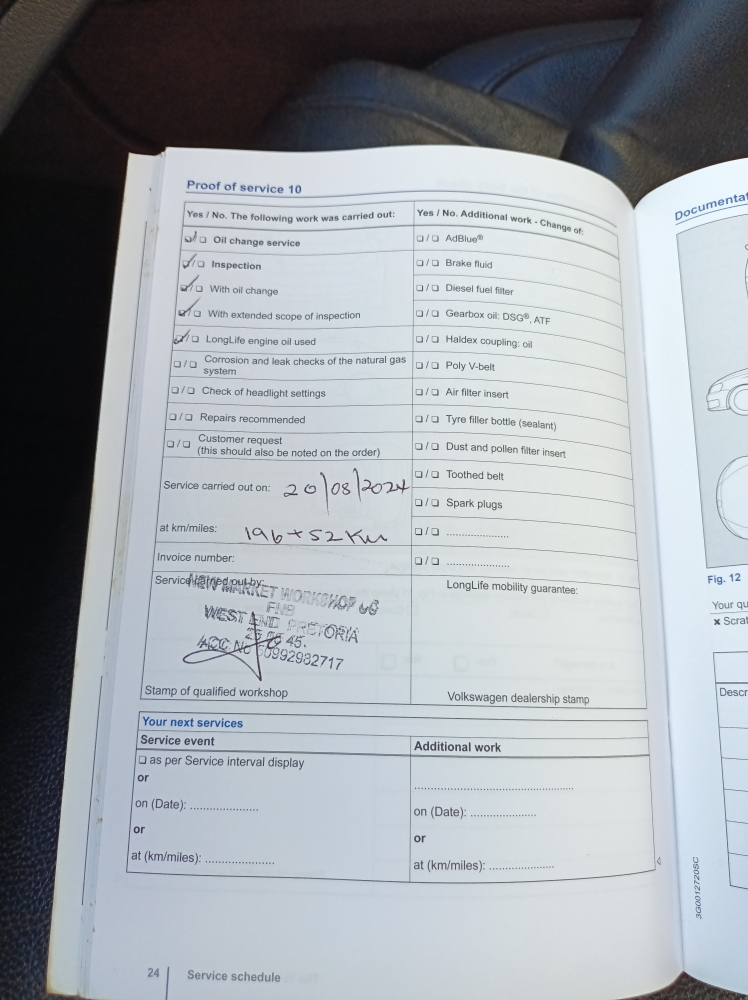 Proof of service 10
Yes / No. The following work was carried out:
☑/☐ Oil change service
☑/☐ Inspection
☑/☐ With oil change
☑/☐ With extended scope of inspection
☑/☐ LongLife engine oil used
☐/☐ Corrosion and leak checks of the natural gas
system
☐/☐ Check of headlight settings
☐/☐ Repairs recommended
☐/☐ Customer request
(this should also be noted on the order)
Service carried out on: 20/08/2024
at km/miles:
Invoice number:
Service carried out by:
NEW MARKET WORKSHOP
FNB
WEST END PRETORIA
45.
ACC No
Stamp of qualified workshop
Yes / No. Additional work - Change of:
☐/☐ AdBlue®
☐/☐ Brake fluid
☐/☐ Diesel fuel filter
☐/☐ Gearbox oil: DSG®, ATF
☐/☐ Haldex coupling: oil
☐/☐ Poly V-belt
☐/☐ Air filter insert
☐/☐ Tyre filler bottle (sealant)
☐/☐ Dust and pollen filter insert
☐/☐ Toothed belt
☐/☐ Spark plugs
☐/☐ ....................
☐/☐ ....................
LongLife mobility guarantee:
Volkswagen dealership stamp
Your next services
Service event
☐ as per Service interval display
or
on (Date): ....................
or
at (km/miles): ....................
Additional work
..............................................
on (Date): ....................
or
at (km/miles): ....................
24
Service schedule
3G0012720SC
Documentat
Fig. 12
Your qu
× Scrat
Descr